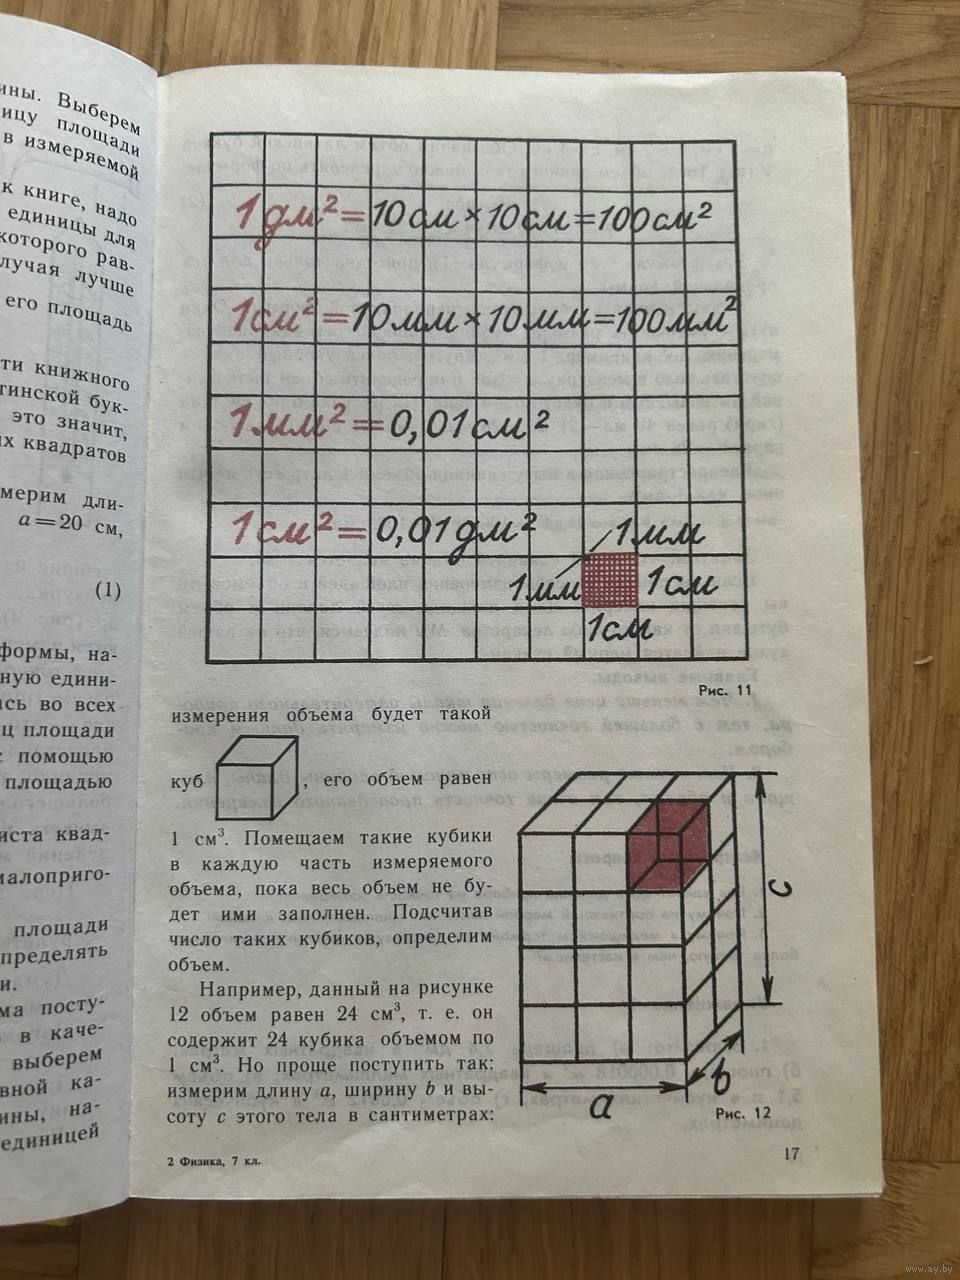 ины. Выберем
ицу площади
в измеряемой
к книге, надо
единицы для
которого рав-
лучая лучше
его площадь
ти книжного
тинской бук-
это значит,
их квадратов
мерим дли-
a=20 см,
(1)
формы, на-
ную едини-
ась во всех
ц площади
с помощью
площадью
иста квад-
малоприго-
площади
пределять
и.
ма посту-
в каче-
выберем
вной ка-
ины, на-
единицей
1 дм² = 10 см × 10 см = 100 см²
1 см² = 10 мм × 10 мм = 100 мм²
1 мм² = 0,01 см²
1 см² = 0,01 дм²
1 мм
1 мм
1 см
1 см
Рис. 11
измерения объема будет такой
куб , его объем равен
1 см³. Помещаем такие кубики
в каждую часть измеряемого
объема, пока весь объем не бу-
дет ими заполнен. Подсчитав
число таких кубиков, определим
объем.
Например, данный на рисунке
12 объем равен 24 см³, т. е. он
содержит 24 кубика объемом по
1 см³. Но проще поступить так:
измерим длину a, ширину b и вы-
соту c этого тела в сантиметрах:
c
b
a
Рис. 12
2 Физика, 7 кл.
17
www.ay.by